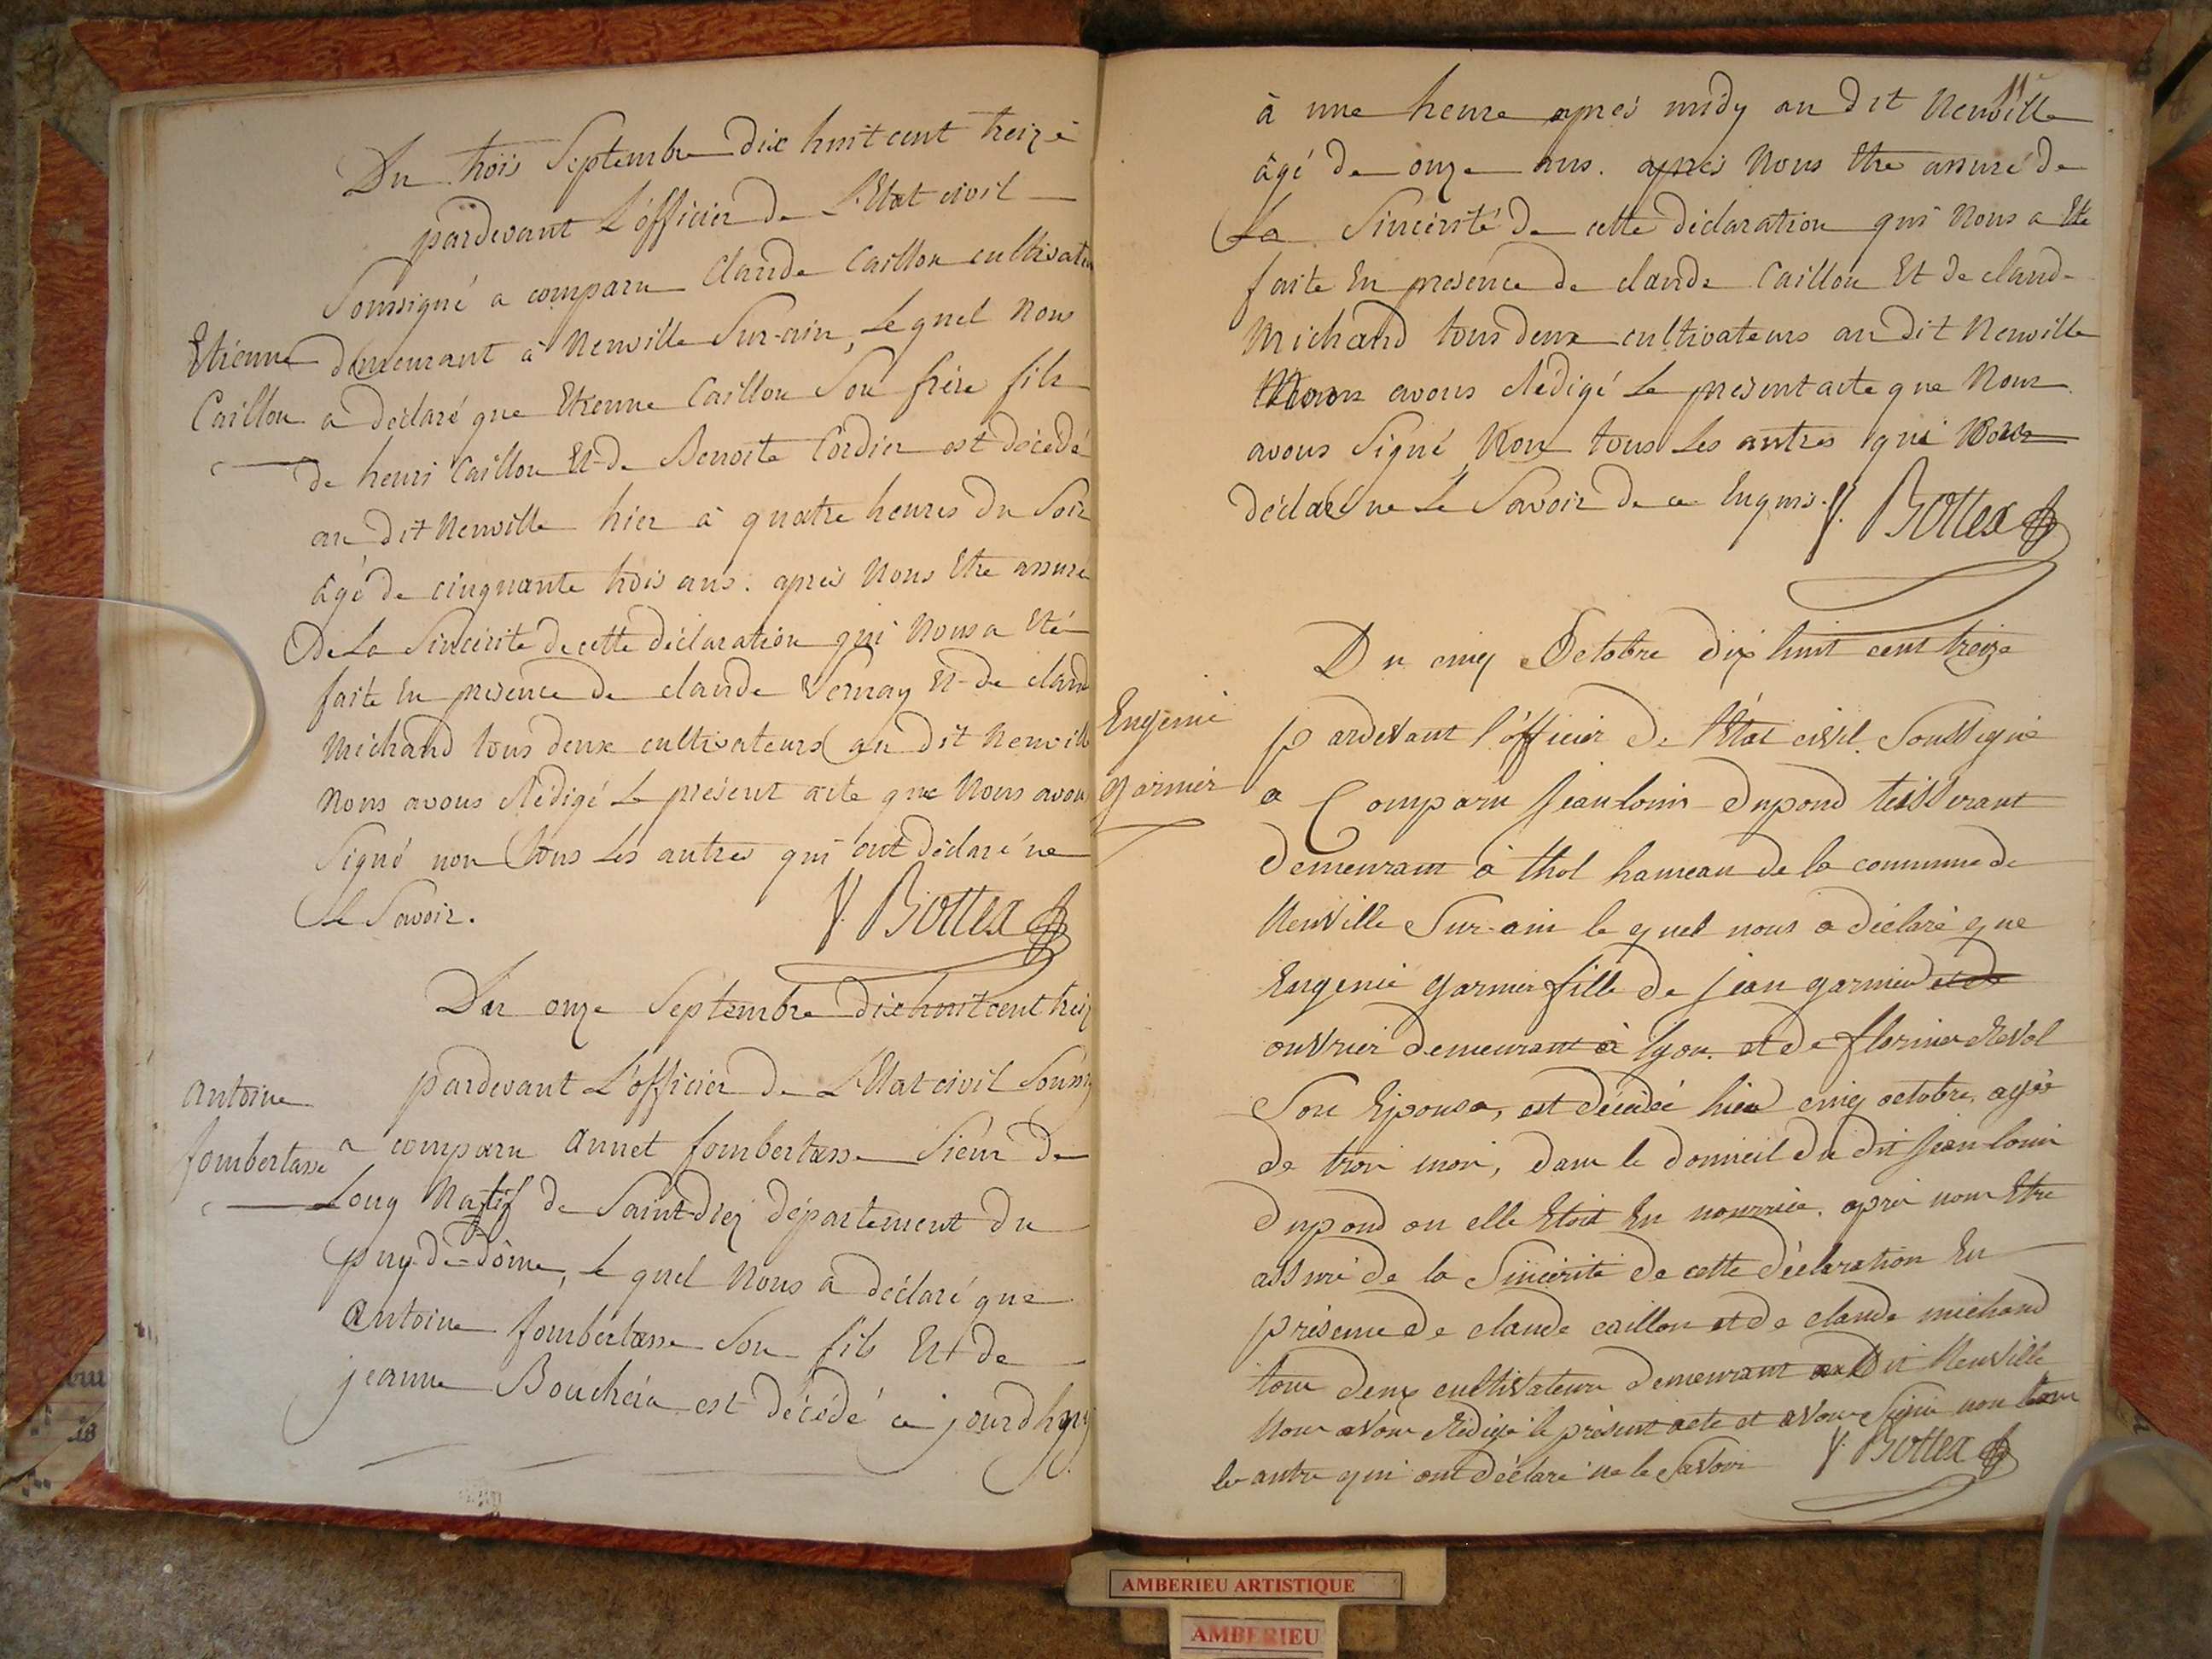 Du trois Septembre dix huit cent treize
pardevant L'officier de L'Etat civil
Soussigné a comparu Claude Caillou cultivateu
Etienne
demeurant à Neuville Sur-ain, Lequel Nous
Caillou
a déclaré que Etienne Caillou Son frère fils
de henri Caillou Et de Benoite Cordier est décédé
au dit Neuville hier à quatre heures du Soir
âgé de cinquante trois ans. après Nous Etre assuré
De La Sincérité de cette déclaration qui Nous a Eté
faite En presence de claude Vernay Et de claud
Michaud tous deux cultivateurs au dit Neuvill
Nous avons Rédigé Le présent acte que Nous avon
Signé non tous Les autres qui ont déclaré ne
Le Savoir. f. Bottex
Du onze Septembre dix huit cent treiz
pardevant L'officier de L'Etat civil Souss
Antoine
a comparu Annet fombertasse Sieur de
fombertasse
Long Natif de Saint-Diez département du
puy-de-Dôme, Lequel Nous a déclaré que
Antoine fombertasse Son fils Et de
jeanne Boucheia est décédé ce jourd'huy
11
à une heure après midy au dit Neuville
âgé de onze ans. après Nous Etre assuré de
La Sincérité de cette déclaration qui Nous a Eté
faite En présence de claude Caillou Et de claude
Michaud tous deux cultivateurs au dit Neuville
Nous avons Rédigé Le présent acte que Nous
avons Signé Non tous Les autres qui Nous
déclaré ne Le Savoir de ce Enquis. f. Bottex
Du cinq Octobre dix huit cent treize
Eugenie
pardevant l'officier de l'Etat civil Soussigné
garnier
a Comparu Jean louis dupond tisserant
demeurant à thol hameau de la commune de
Neuville Sur-ain lequel nous a déclaré que
Eugenie garnier fille de jean garnier et de
ouvrier demeurant à lyon. et de florine Reval
Son Epouse, est décédée hier cinq octobre, agée
de troi moi, dans le domicil du dit Jean louis
dupond ou elle Etoit En nourrice. après nous Etre
assuré de la Sincérité de cette déclaration En
présence de claude caillou et de claude michaud
tous deux cultivateurs demeurant au dit Neuville
Nous avons Rédigé le présent acte et avons Signé non tous
les autre qui ont déclaré ne le Savoir f. Bottex
AMBERIEU ARTISTIQUE
AMBERIEU